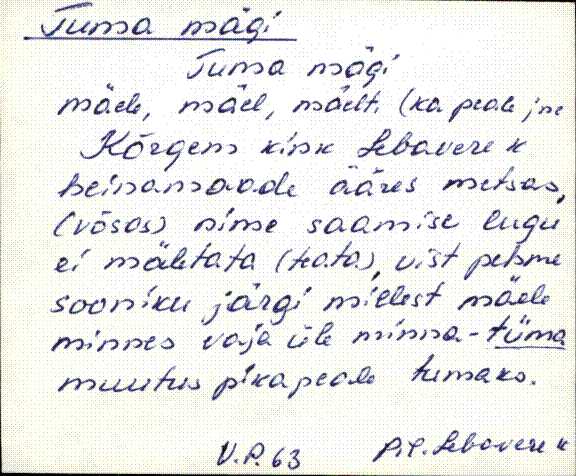 Tuma mägi
Tuma mägi
mäele, mäel, mäelt. (ka peale jne
Kõrgem kink Lebavere k
heinamaade ääres metsas,
(võsas) nime saamise lugu
ei mäletata (teata), vist pehme
sooniku järgi millest mäele
minnes vaja üle minna - tüma
muutus pikapeale tumaks.
V.P. 63 Pil. Lebavere k